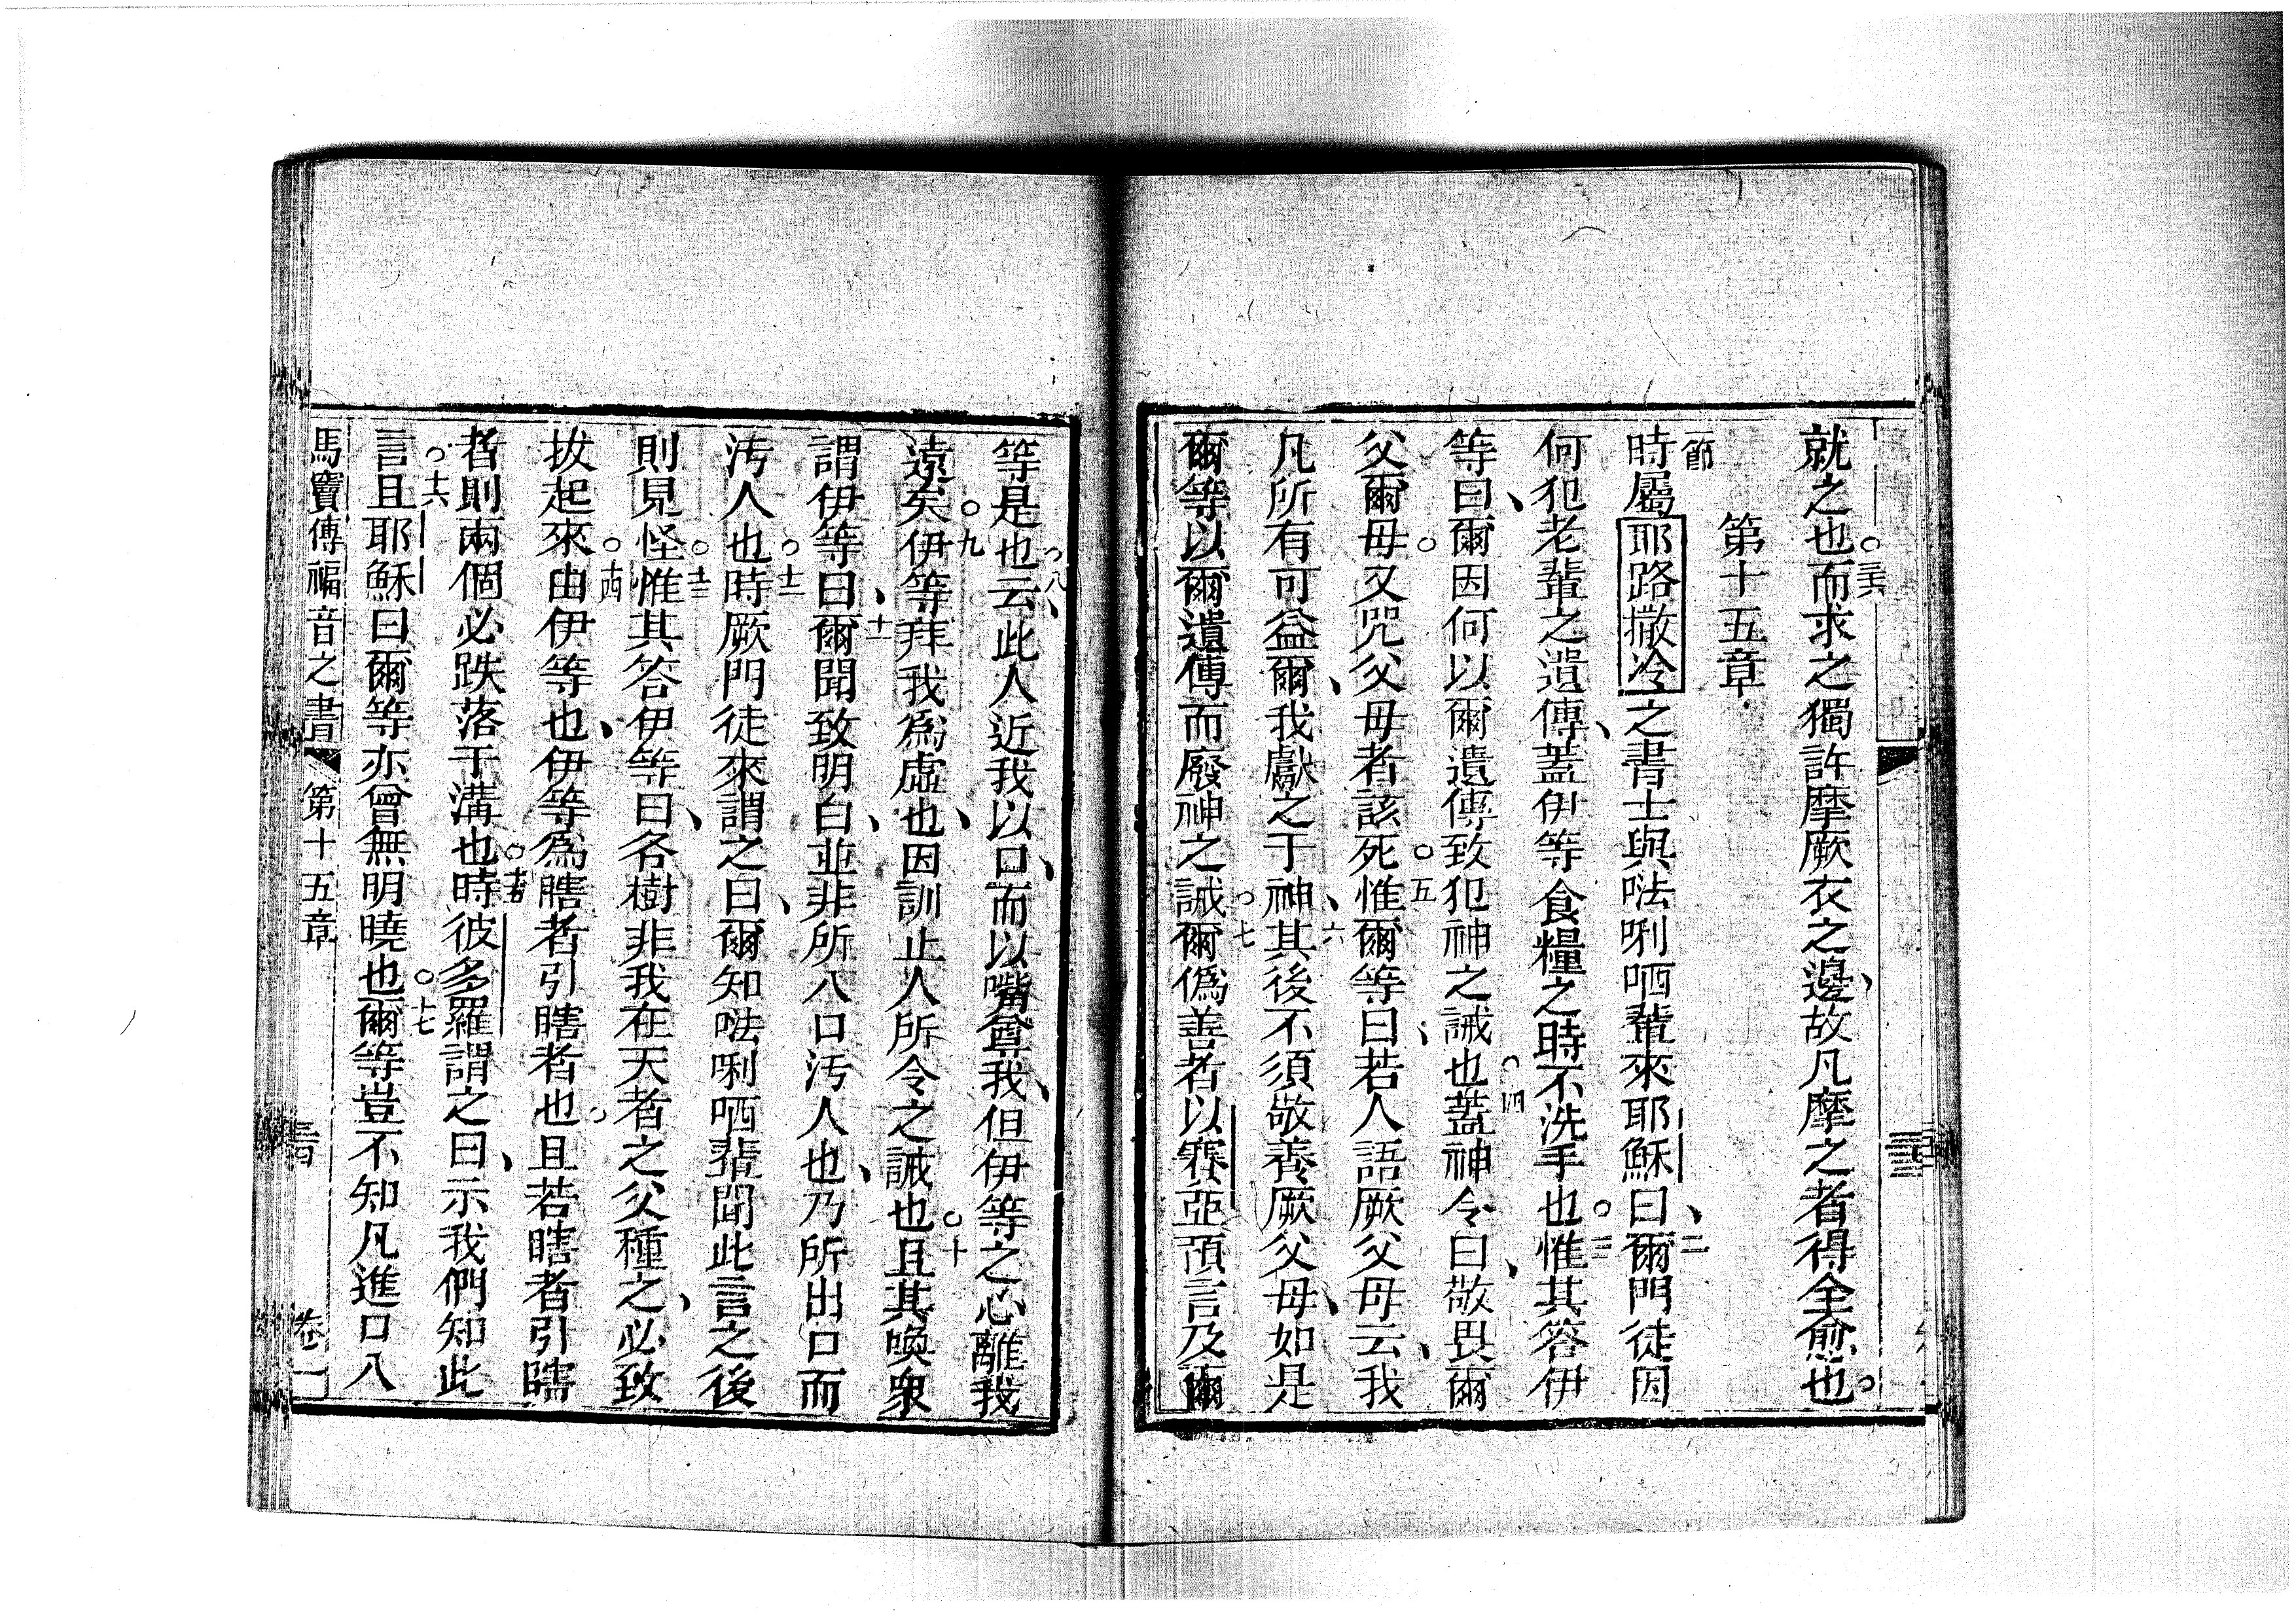 就之也○三六而求之獨許摩厥衣之邊、故凡摩之者得全愈也○
第十五章
一節時屬耶路撒冷之書士與𠵽唎哂輩來耶穌曰、二爾門徒因
何犯老輩之遺傳、蓋伊等食糧之時不洗手也○三惟其答伊
等曰、爾因何以爾遺傳致犯神之誡也○四蓋神令曰、敬畏爾
父爾母○又咒父母者該死○五惟爾等曰、若人語厥父母云、我
凡所有可益爾、我獻之于神、六其後不須敬養厥父母、如是
爾等以爾遺傳而廢神之誡○七爾偽善者以賽亞預言及爾
等是也○八云、此人近我以口、而以嘴尊我、但伊等之心離我
遠矣○九伊等拜我為虛也、因訓止人所令之誡也○十且其喚眾
謂伊等曰、十一爾聞致明白、並非所入口汚人也、乃所出口而
汚人也○十二時厥門徒來謂之曰、爾知𠵽唎哂輩聞此言之後
則見怪○十三惟其答伊等曰、各樹非我在天者之父種之、必致
拔起來○十四由伊等也、伊等為瞎者引瞎者也○且若瞎者引瞎
者則兩個必跌落于溝也○十五時彼多羅謂之曰、示我們知此
言○十六且耶穌曰爾等亦曾無明曉也○十七爾等豈不知凡進口入
馬竇傳福音之書 第十五章 卷一